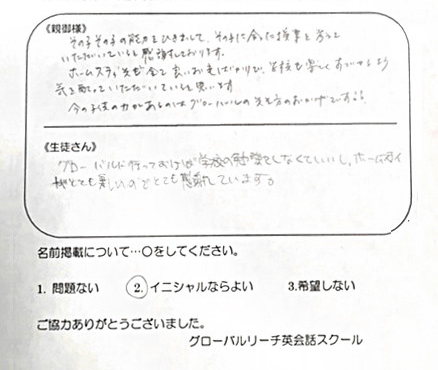 《親御様》
その子その子の能力をひきだして、その子に合った授業を
いただいていると感謝しております。
ホームステイ先も全て良いお宅ばかりで、
気を配っていただいていると思います
今の子供の力があるのはグローバルの先生方のおかげです。
《生徒さん》
グローバルに行っておけば学校の勉強をしなくていいし、ホームステイ
もとても楽しいのでとても感謝しています。
名前掲載について…○をしてください。
1. 問題ない 2. イニシャルならよい 3.希望しない
ご協力ありがとうございました。
グローバルリーチ英会話スクール